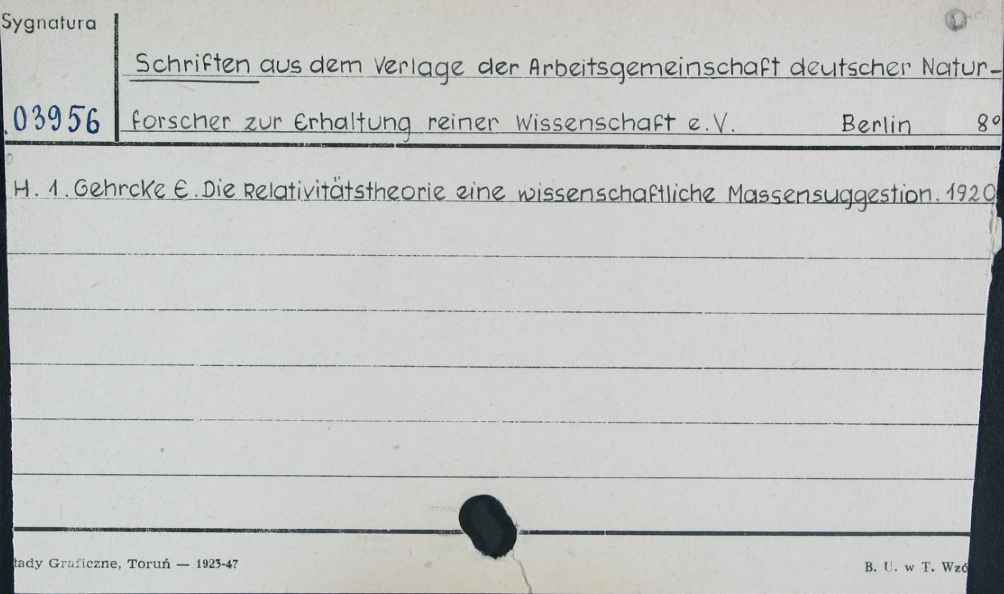 Sygnatura
Schriften aus dem Verlage der Arbeitsgemeinschaft deutscher Natur-
03956
forscher zur Erhaltung reiner Wissenschaft e.V. Berlin 8º
H. 1. Gehrcke E. Die Relativitätstheorie eine wissenschaftliche Massensuggestion. 1920
Graficzne, Toruń — 1925-47
B. U. w T.